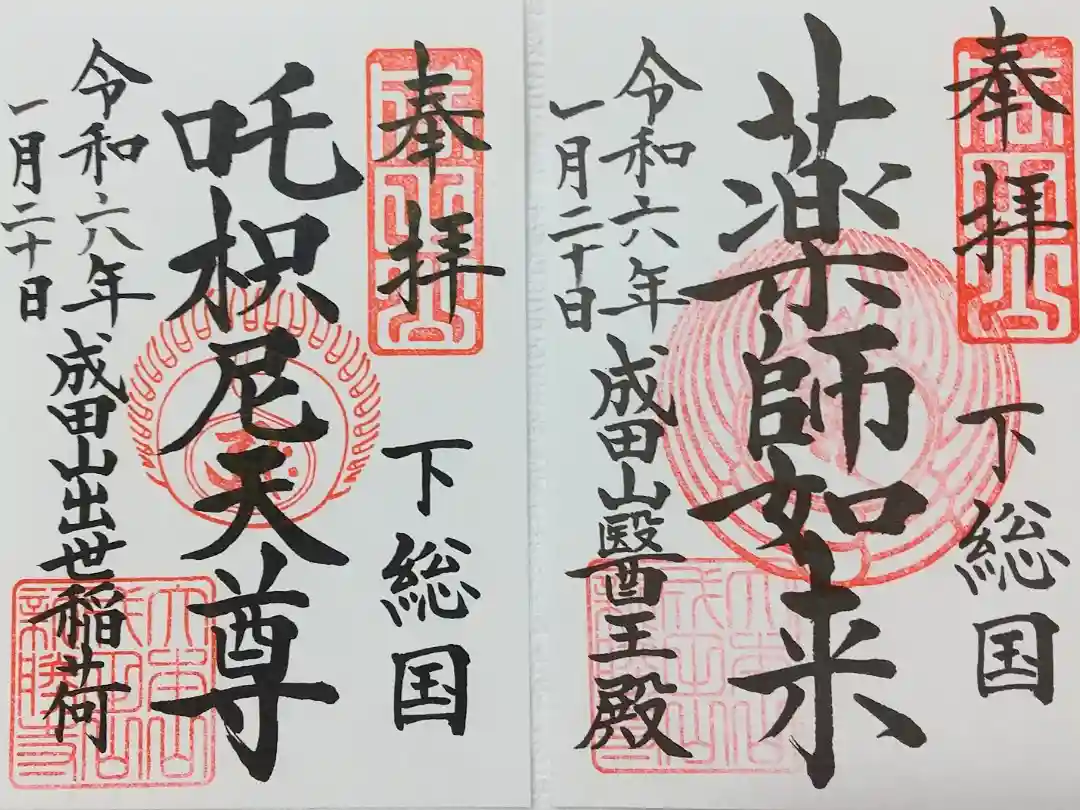 奉拝
下総国
薬師如来
令和六年
成田山醫王殿
一月二十日
奉拝
下総国
吒枳尼天尊
令和六年
成田山出世稲荷
一月二十日